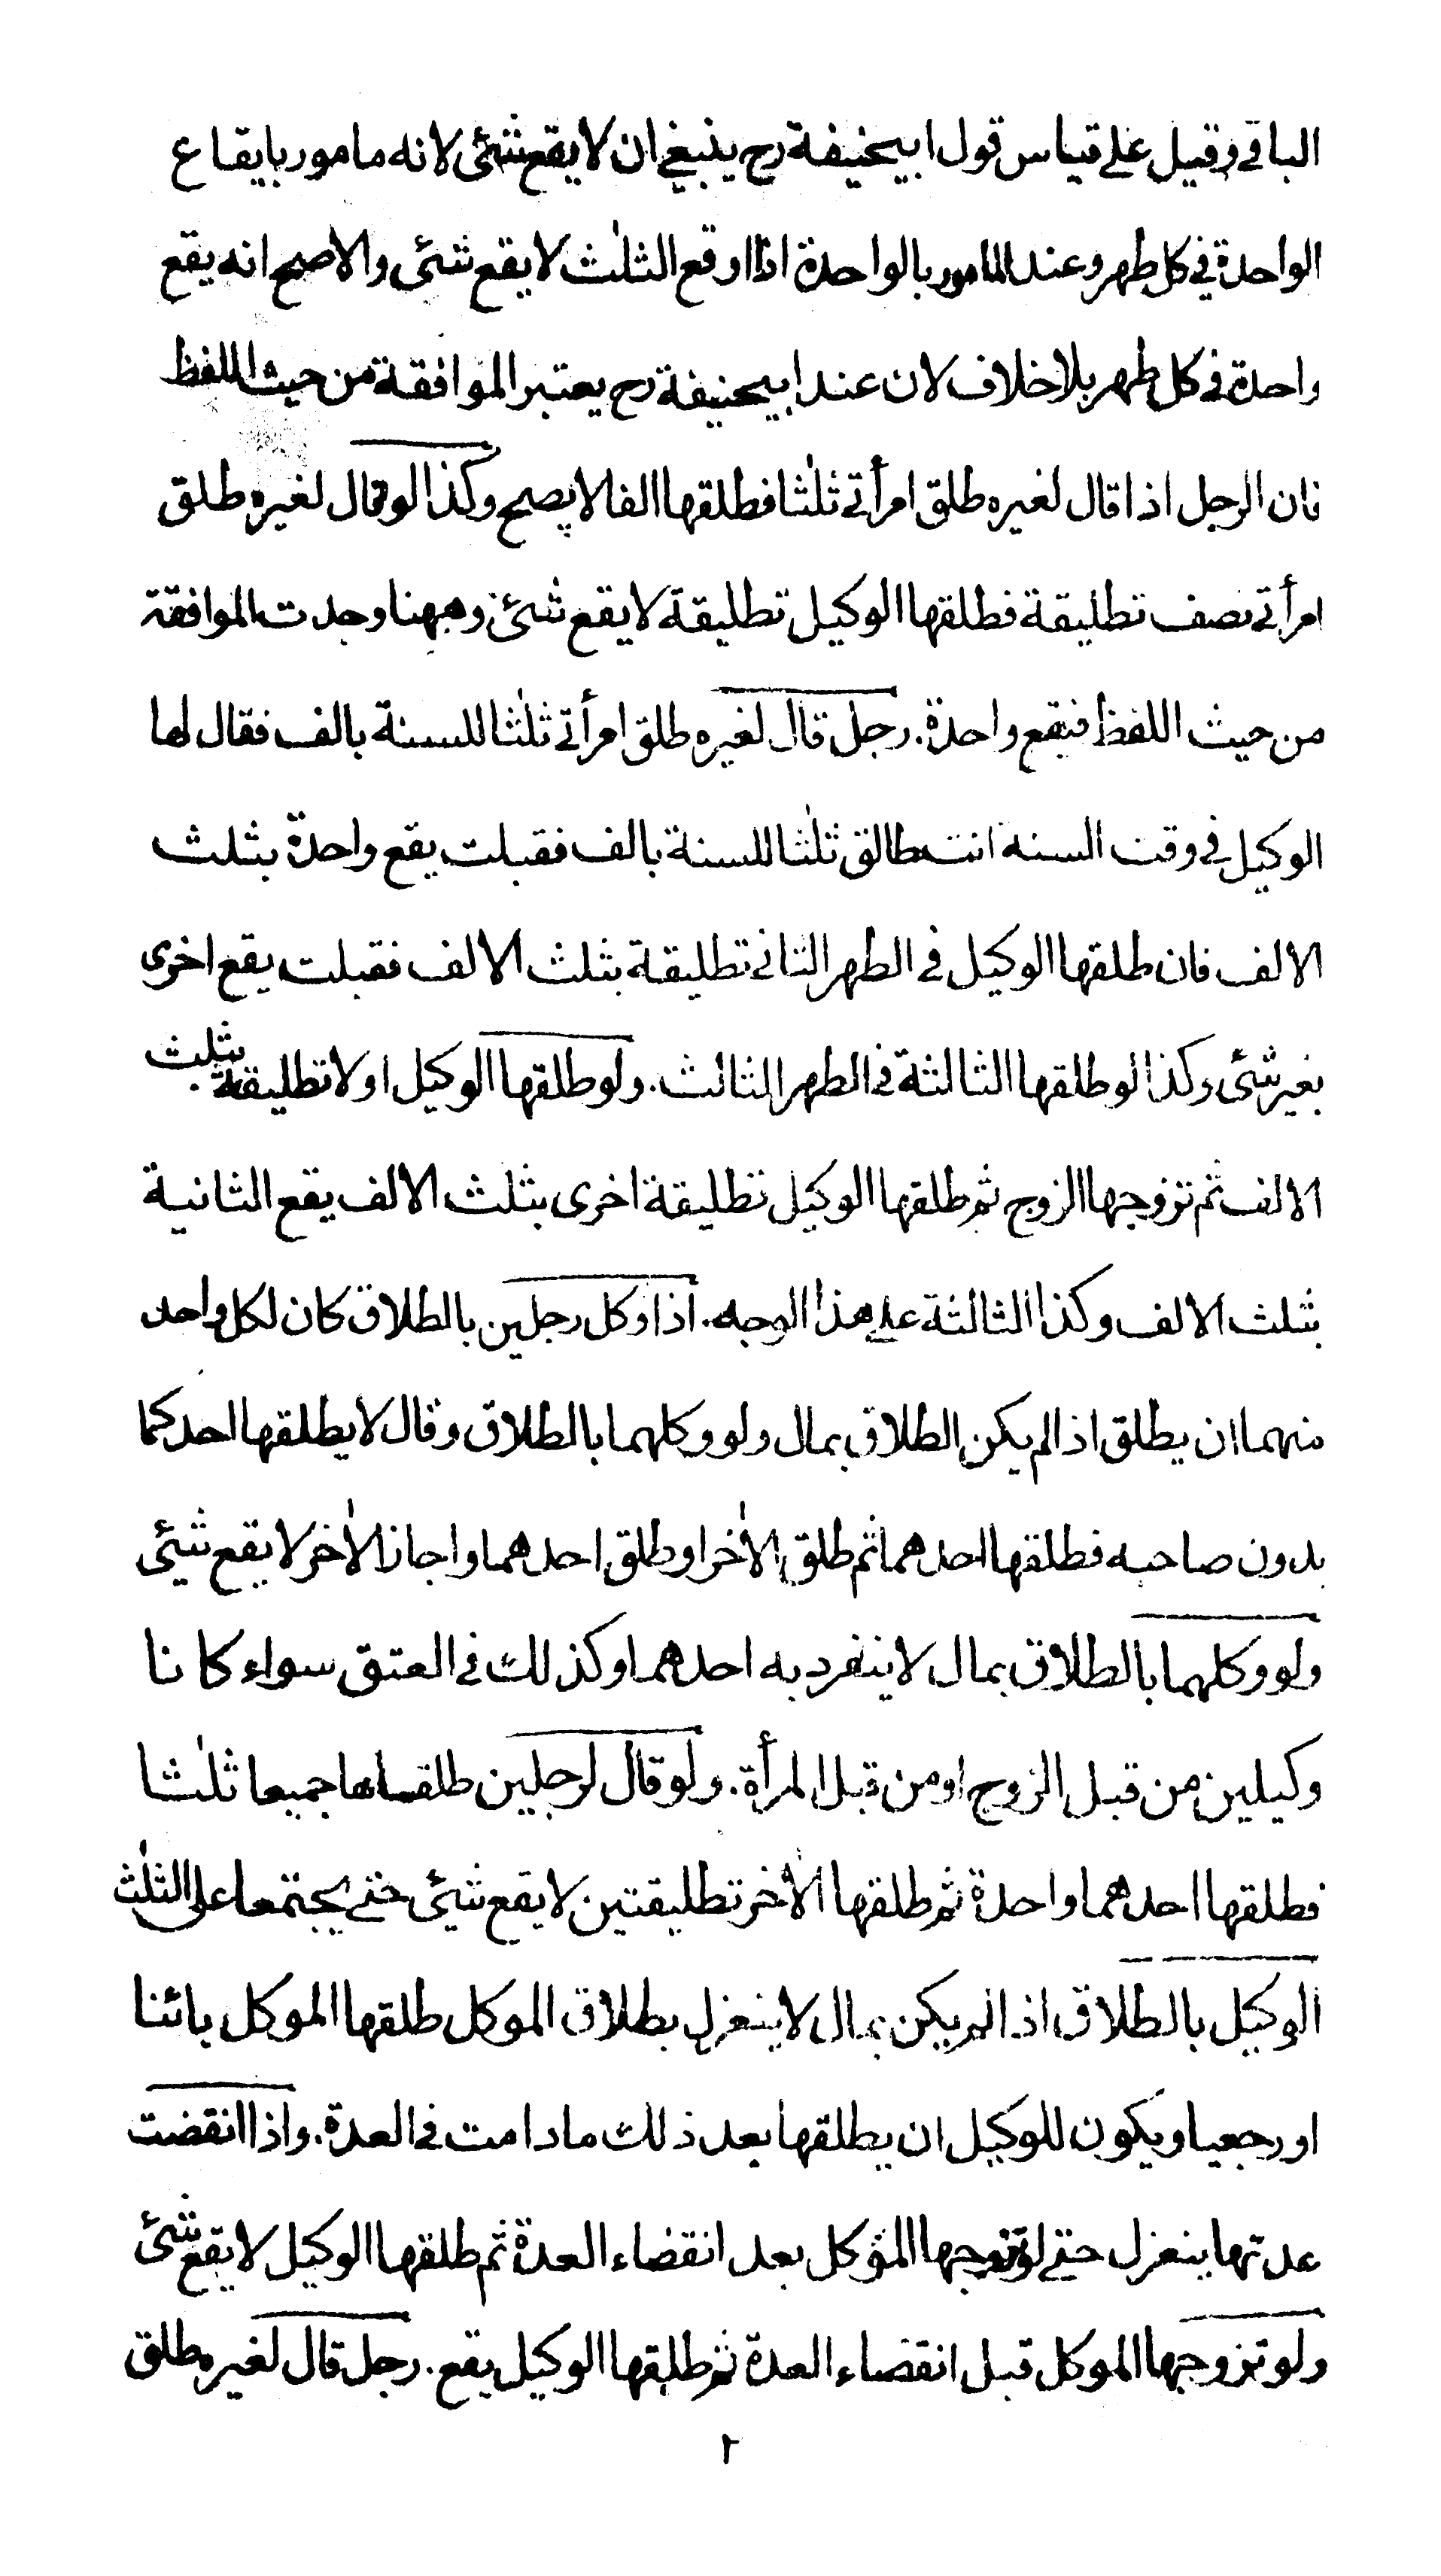 الباقي وقيل على قياس قول ابيحنيفة رح ينبغي ان لا يقع شئ لانه مامور بايقاع
الواحدة في كل طهر وعند المامور بالواحدة اذا اوقع الثلٰث لا يقع شئ والاصح انه يقع
واحدة في كل طهر بلا خلاف لان عند ابيحنيفة رح يعتبر الموافقة من حيث اللفظ
فان الرجل اذا قال لغيره طلق امرأتي ثلٰثا فطلقها الفا لا يصح وكذا لو قال لغيره طلق
امرأتي نصف تطليقة فطلقها الوكيل تطليقة لا يقع شئ وههنا وجدت الموافقة
من حيث اللفظ فتقع واحدة. رجل قال لغيره طلق امرأتي ثلٰثا للسنة بالف فقال لها
الوكيل في وقت السنه انت طالق ثلٰثا للسنة بالف فقبلت يقع واحدة بثلث
الالف فان طلقها الوكيل في الطهر الثاني تطليقة بثلث الالف فقبلت يقع اخرى
بغير شئ وكذا لو طلقها الثالثة في الطهر الثالث. ولو طلقها الوكيل اولا تطليقة بثلث
الالف ثم تزوجها الزوج ثم طلقها الوكيل تطليقة اخرى بثلث الالف يقع الثانية
بثلث الالف وكذا الثالثة على هذا الوجه. اذا وكل رجلين بالطلاق كان لكل واحد
منهما ان يطلق اذا لم يكن الطلاق بمال ولو وكلهما بالطلاق وقال لا يطلقها احدكما
بدون صاحبه فطلقها احدهما ثم طلق الاٰخر او طلق احدهما واجاز الاٰخر لا يقع شيئ
ولو وكلهما بالطلاق بمال لا ينفرد به احدهما وكذلك في العتق سواء كانا
وكيلين من قبل الزوج او من قبل المرأة. ولو قال لرجلين طلقاها جميعا ثلٰثا
فطلقها احدهما واحدة ثم طلقها الاٰخر تطليقتين لا يقع شيئ حتى يجتمعا على الثلٰث
الوكيل بالطلاق اذا لم يكن بمال لا ينعزل بطلاق الموكل طلقها الموكل بائنا
او رجعيا ويكون للوكيل ان يطلقها بعد ذلك ما دامت في العدة. واذا انقضت
عدتها ينعزل حتى لو تزوجها الموكل بعد انقضاء العدة ثم طلقها الوكيل لا يقع شئ
ولو تزوجها الموكل قبل انقضاء العدة ثم طلقها الوكيل يقع. رجل قال لغيره طلق
٢